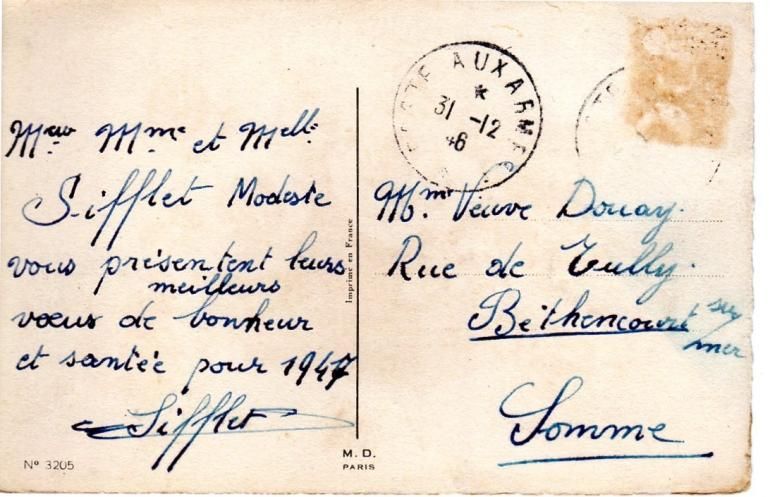 Mr Mme et Melle
Sifflet Modeste
vous présentent leurs
meilleurs
vœux de bonheur
et santée pour 1947
Sifflet
N° 3205
Imprimé en France
M. D.
PARIS
POSTE AUX ARMEES
*
31 -12
46
Mme Veuve Douay.
Rue de Tully.
Béthencourt sur
mer
Somme